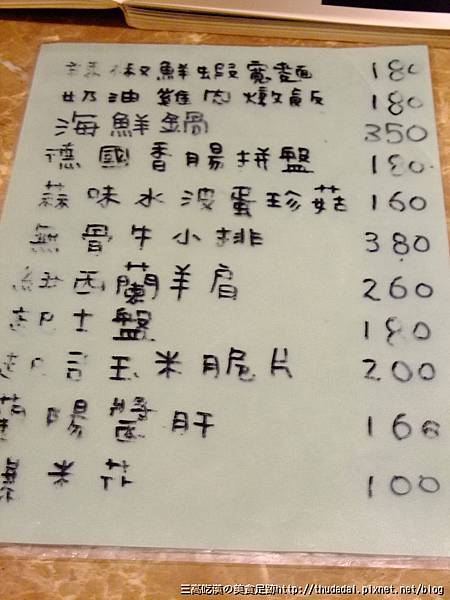 辣椒鮮蝦寬麵 180
奶油雞肉燉飯 180
海鮮鍋 350
德國香腸拼盤 180
蒜味水波蛋珍菇 160
無骨牛小排 380
紐西蘭羊肩 260
起士盤 180
起司玉米脆片 200
鵝醬肝 160
爆米花 100
三高吃漢の美食足跡http://thudadai.pixnet.net/blog